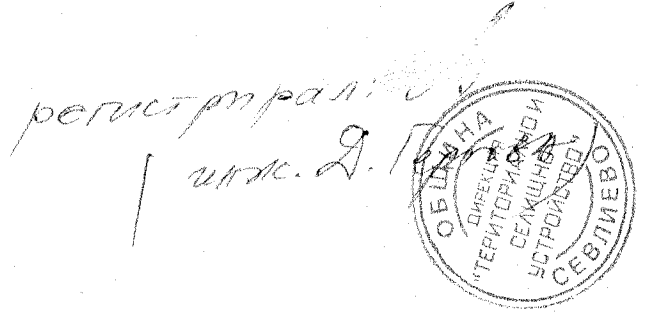 регистрирал:
инж. Д.
ОБЩИНА СЕВЛИЕВО
ДИРЕКЦИЯ
"ТЕРИТОРИАЛНО И
СЕЛИЩНО
УСТРОЙСТВО"